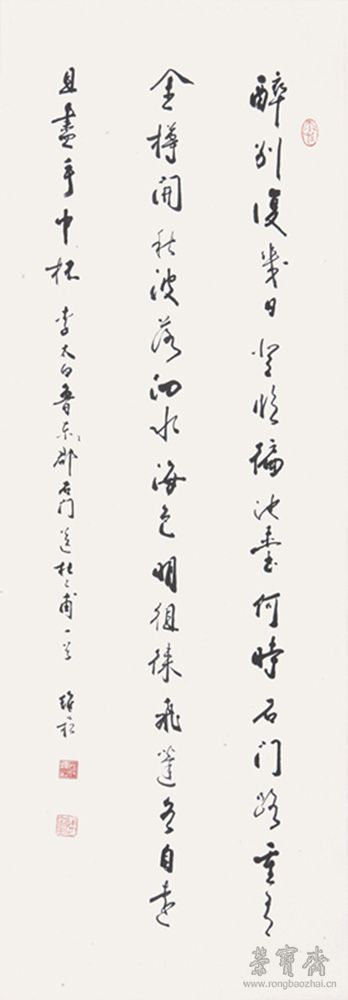 醉别復幾日登臨徧池臺何時石门路重有
金樽開秋波落泗水海色明徂徠飛蓬各自遠
且盡手中杯 李太白魯東郡石门送杜二甫一首
榮寶齋
www.rongbaozhai.cn